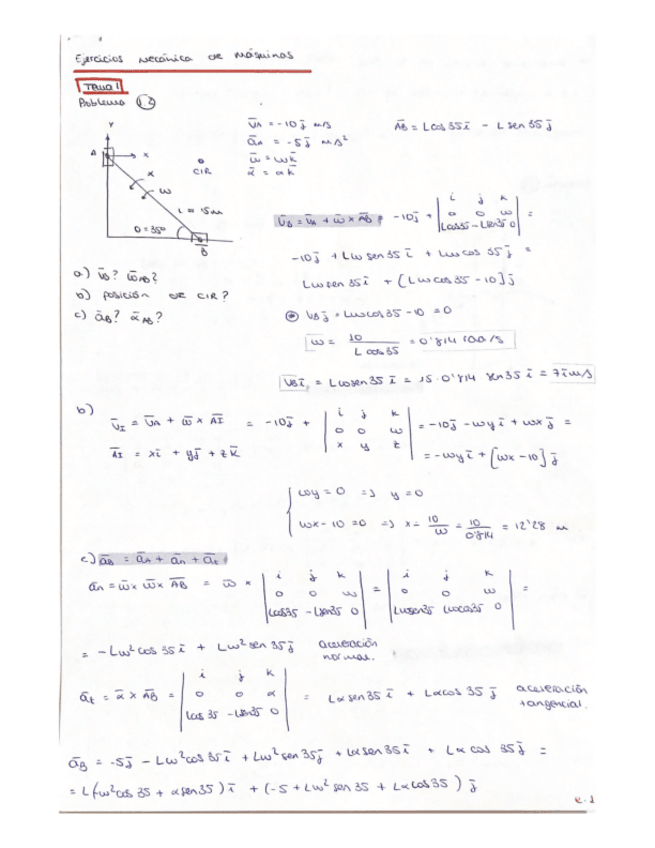 Ejercicios Mecánica de máquinas
Tema 1
Problema 1.2
Y
A
x
α
ω
L = 15m
θ = 35º
B
CIR
v̄A = -10j̄ m/s
āA = -5j̄ m/s²
ω̄ = ωk̄
ᾱ = αk̄
AB̄ = Lcos35ī - Lsen35j̄
v̄B = v̄A + ω̄ × AB̄ = -10j̄ + | i j k | 0 0 ω | Lcos35 -Lsen35 0 | =
-10j̄ + Lω sen35ī + Lω cos35j̄ =
Lω sen35ī + [Lω cos35 - 10]j̄
a) v̄B? ω̄AB?
b) Posición de CIR?
c) āB? ᾱAB?
vBj̄ = Lωcos35 - 10 = 0
ω = 10 / L cos35 = 0'814 rad/s
vBī = Lωsen35ī = 15·0'814 sen35ī = 7ī m/s
b)
v̄I = v̄A + ω̄ × AĪ = -10j̄ + | i j k | 0 0 ω | x y z | = -10j̄ - ωyī + ωxj̄ =
AĪ = xī + yj̄ + zk̄
= -ωyī + [ωx - 10]j̄
ωy = 0 => y = 0
ωx - 10 = 0 => x = 10/ω = 10/0'814 = 12'28 m
c) āB = āA + ān + āt
ān = ω̄ × ω̄ × AB̄ = ω̄ × | i j k | 0 0 ω | Lcos35 -Lsen35 0 | = | i j k | 0 0 ω | Lωsen35 Lωcos35 0 | =
= -Lω²cos35ī + Lω²sen35j̄ aceleración normal.
āt = ᾱ × AB̄ = | i j k | 0 0 α | Lcos35 -Lsen35 0 | = Lαsen35ī + Lαcos35j̄ aceleración tangencial.
āB = -5j̄ - Lω²cos35ī + Lω²sen35j̄ + Lαsen35ī + Lαcos35j̄ =
= L(-ω²cos35 + αsen35)ī + (-5 + Lω²sen35 + Lαcos35)j̄